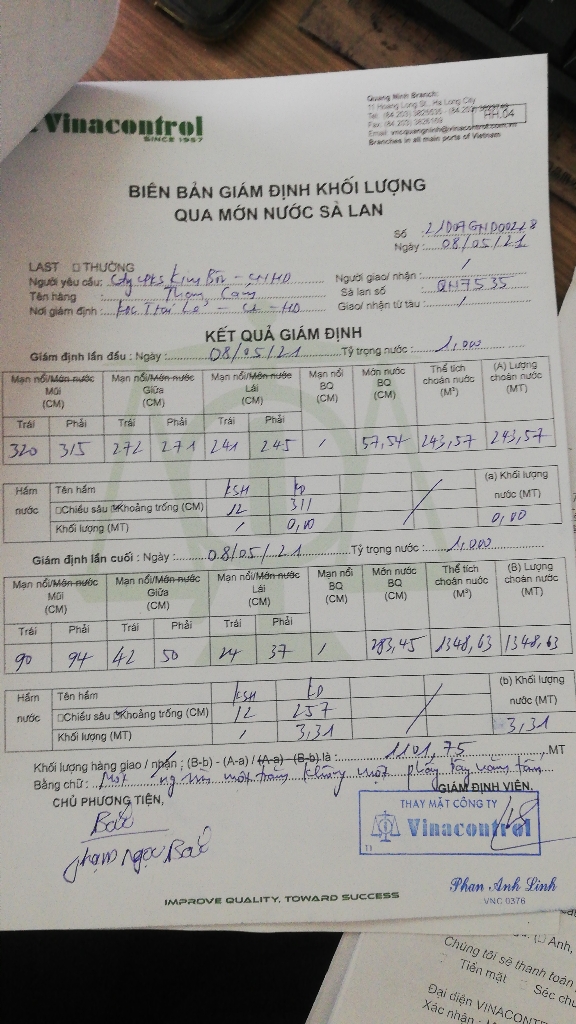 Vinacontrol
SINCE 1957
Quang Ninh Branch:
11 Hoang Long St., Ha Long City
Email: vncquangninh@vinacontrol.com.vn
Branches in all main ports of Vietnam
HH.04
BIÊN BẢN GIÁM ĐỊNH KHỐI LƯỢNG
QUA MỚN NƯỚC SÀ LAN
Số
Ngày: 08/05/21
LAST THƯỜNG
Người yêu cầu: Người giao/ nhận: /
Tên hàng Than Cám Sà lan số QN7535
Nơi giám định: Giao/ nhận từ tàu: /
KẾT QUẢ GIÁM ĐỊNH
Giám định lần đầu: Ngày: 08/05/21 Tỷ trọng nước: 1,000
Mạn nổi/Món nước Mũi (CM) Mạn nổi/Món nước Giữa (CM) Mạn nổi/Món nước Lái (CM) Mạn nổi BQ (CM) Món nước BQ (CM) Thể tích choán nước (M³) (A) Lượng choán nước (MT)
Trái Phải Trái Phải Trái Phải
320 315 272 271 241 245 / 57,54 243,57 243,57
Hầm nước Tên hầm KSH (a) Khối lượng nước (MT)
Chiều sâu Khoảng trống (CM) 12 311
Khối lượng (MT) / 0,00 0,00
Giám định lần cuối: Ngày: 08/05/21 Tỷ trọng nước: 1,000
Mạn nổi/Món nước Mũi (CM) Mạn nổi/Món nước Giữa (CM) Mạn nổi/Món nước Lái (CM) Mạn nổi BQ (CM) Món nước BQ (CM) Thể tích choán nước (M³) (B) Lượng choán nước (MT)
Trái Phải Trái Phải Trái Phải
90 94 42 50 24 37 / 283,45 1348,63 1348,63
Hầm nước Tên hầm KSH (b) Khối lượng nước (MT)
Chiều sâu Khoảng trống (CM) 12 257
Khối lượng (MT) / 3,31 3,31
Khối lượng hàng giao / nhận : (B-b) - (A-a) / (A-a) - (B-b) là : 1101,75 MT
Bằng chữ: Một nghìn một trăm không một phẩy bảy năm tấn
CHỦ PHƯƠNG TIỆN, GIÁM ĐỊNH VIÊN,
Phạm Ngọc
THAY MẶT CÔNG TY
Vinacontrol
Phan Anh Linh
VNC 0376
IMPROVE QUALITY, TOWARD SUCCESS
Anh,
Chúng tôi sẽ thanh toán
Tiền mặt Séc
Đại diện VINACONT
Xác nhận